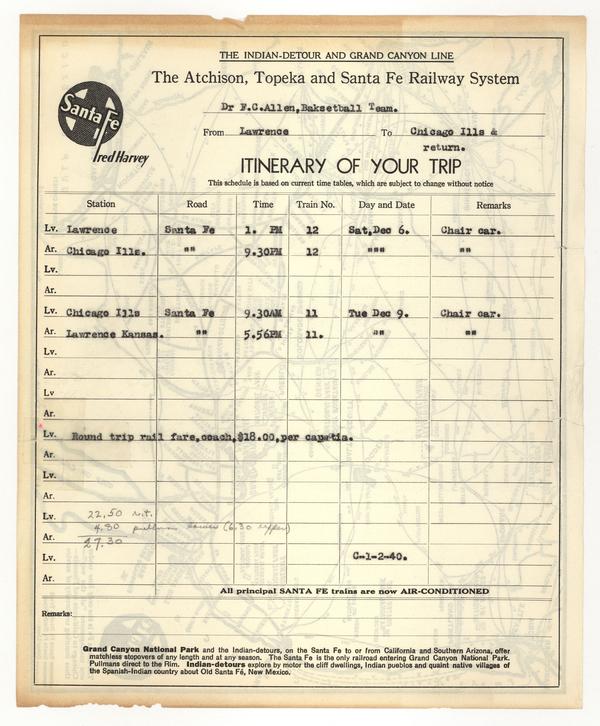 THE INDIAN-DETOUR AND GRAND CANYON LINE
The Atchison, Topeka and Santa Fe Railway System
Santa Fe
Fred Harvey
Dr F.C.Allen,Baksetball Team.
From Lawrence To Chicago Ills & return.
ITINERARY OF YOUR TRIP
This schedule is based on current time tables, which are subject to change without notice
Station Road Time Train No. Day and Date Remarks
Lv. Lawrence Santa Fe 1. PM 12 Sat,Dec 6. Chair car.
Ar. Chicago Ills. "" 9.30PM 12 """ ""
Lv.
Ar.
Lv. Chicago Ills Santa Fe 9.30AM 11 Tue Dec 9. Chair car.
Ar. Lawrence Kansas. "" 5.56PM 11. "" ""
Lv.
Ar.
Lv
Ar.
Lv. Round trip rail fare,coach,$18.00,per capatia.
Ar.
Lv.
Ar.
Lv. 22.50 r.t.
4.80 pullman (6.30 upper)
Ar. 27.30
Lv. C-1-2-40.
Ar.
All principal SANTA FE trains are now AIR-CONDITIONED
Remarks:
Grand Canyon National Park and the Indian-detours, on the Santa Fe to or from California and Southern Arizona, offer
matchless stopovers of any length and at any season. The Santa Fe is the only railroad entering Grand Canyon National Park.
Pullmans direct to the Rim. Indian-detours explore by motor the cliff dwellings, Indian pueblos and quaint native villages of
the Spanish-Indian country about Old Santa Fé, New Mexico.